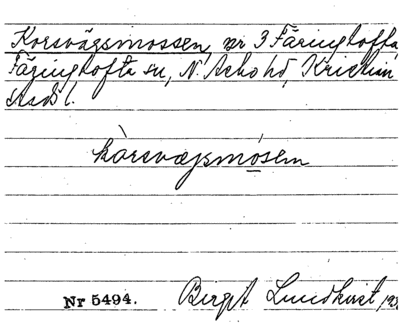 Korsvägsmossen, nr 3 Färingtofta,
Färingtofta sn, N. Åsbo hd, Kristian
stads l.
kòrsvægsmósen
Nr 5494.
Birgit Lundkvist, 192